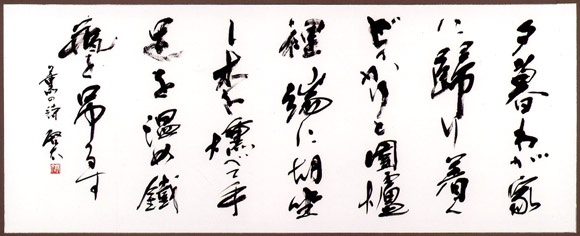 夕暮わが家
に歸り着く
どつかりと圍爐
裡端に胡坐
し木を燻べて手
足を温め鐵
瓶を吊るす
の詩